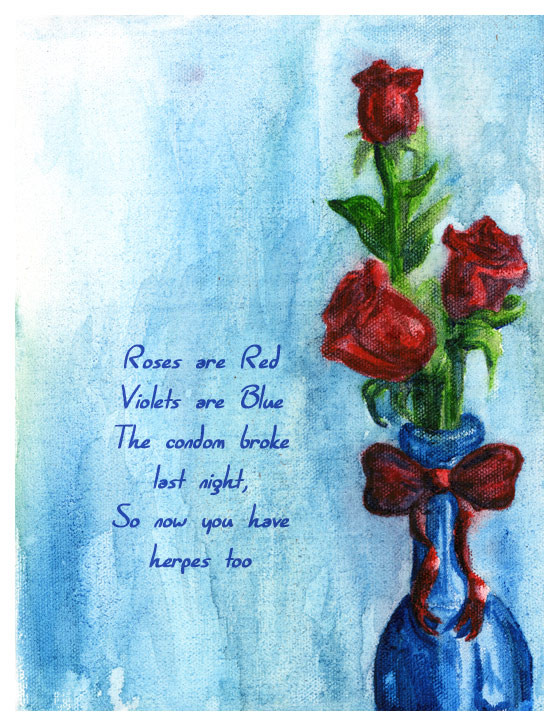 Roses are Red
Violets are Blue
The condom broke
last night,
So now you have
herpes too